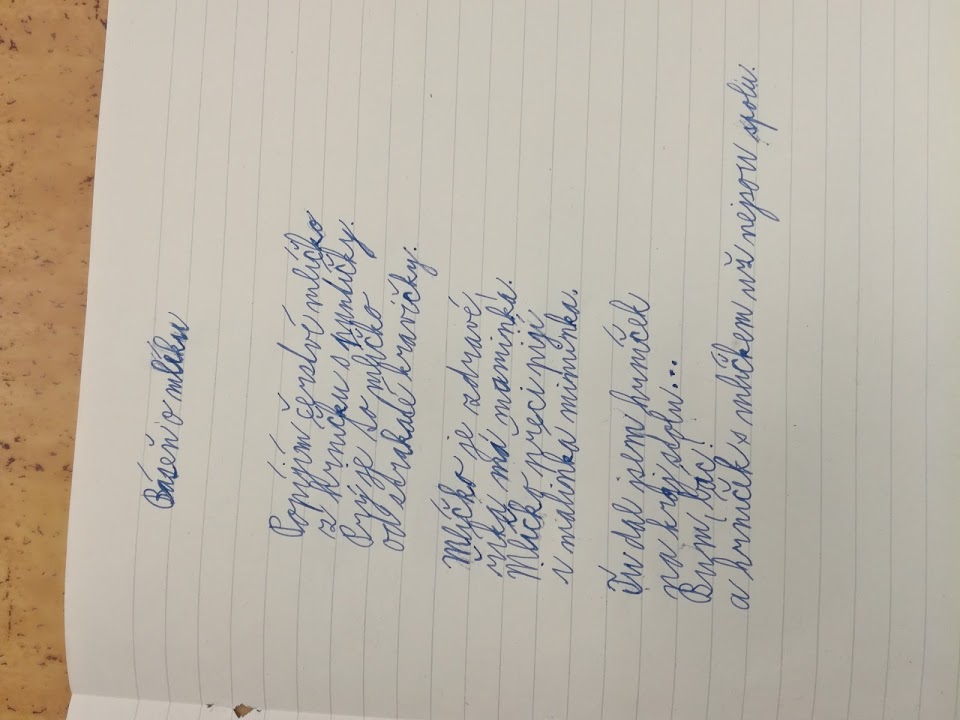 Báseň o mléku
Popíjím čerstvé mlíčko
z hrníčku s puntíčky.
Prý je to mlíčko
od strakaté kravičky.
Mlíčko je zdravé
říká má maminka.
Mlíčko přeci pijí
i malinká miminka.
Tu dal jsem hrníček
na kraj stolu...
Bum, bác!
a hrníček s mlíčkem už nejsou spolu.